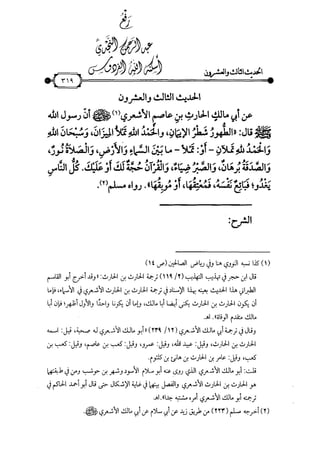 رفع
عبد الرحمن النجدي
أسكنه الله الفردوس
الحديث الثالث والعشرون
٣١٩
الحديث الثالث والعشرون
عن أبي مالك الحارث بن عاصم الأشعري(١) أن رسول الله
ﷺ قال: «الطُّهورُ شَطْرُ الإِيمانِ، والحَمْدُ للهِ تَمْلأُ الْمِيزانَ، وَسُبْحَانَ اللهِ
والْحَمْدُ للهِ تَمْلآنِ - أَوْ: تَمْلأُ - ما بَيْنَ السَّماءِ وَالأَرْضِ، وَالْصَّلاةُ نُورٌ،
وَالصَّدَقَةُ بُرْهَانٌ، وَالصَّبْرُ ضِيَاءٌ، وَالْقُرْآنُ حُجَّةٌ لَكَ أَوْ عَلَيْكَ. كُلُّ النَّاسِ
يَغْدُو؛ فَبَائِعٌ نَفْسَهُ، فَمُعْتِقُهَا، أَوْ مُوبِقُهَا». رواه مسلم(٢).
الشرح:
(١) كذا نسبه النووي هنا وفي رياض الصالحين (ص ١٤)
قال ابن حجر في تهذيب التهذيب (٢/ ١١٩) ترجمة الحارث بن الحارث: «وقد أخرج أبو القاسم
الطبراني هذا الحديث بعينه بهذا الإسناد في ترجمة الحارث بن الحارث الأشعري في الأسماء، فإما
أن يكون الحارث بن الحارث يكنى أيضا أبا مالك، وإما أن يكونا واحدًا والأول أظهر؛ فإن أبا
مالك متقدم الوفاة» اهـ
وقال في ترجمة أبي مالك الأشعري (١٢/ ٢٣٩) «أبو مالك الأشعري له صحبة، قيل: اسمه
الحارث بن الحارث، وقيل: عبيد الله، وقيل: عمرو، وقيل: كعب بن عاصم، وقيل: كعب بن
كعب، وقيل: عامر بن الحارث بن هانئ بن كلثوم.
قلت: أبو مالك الأشعري الذي روى عنه أبو سلام الأسود وشهر بن حوشب ومن في طبقتهما
هو الحارث بن الحارث الأشعري والفصل بينهما في غاية الإشكال حتى قال أبو أحمد الحاكم في
ترجمته أبو مالك الأشعري أمره مشتبه جدا» اهـ
(٢) أخرجه مسلم (٢٢٣) من طريق زيد عن أبي سلام عن أبي مالك الأشعري ﷺ.